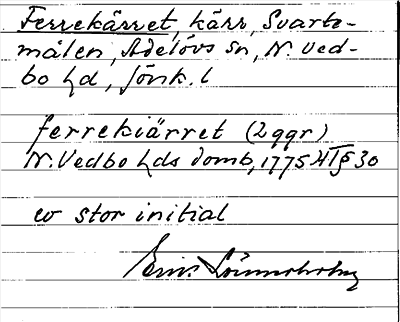 Ferrekärret, kärr, Svarte-
målen, Adelövs sn, N. Ved-
bo hd, Jönk. l
ferrekiärret (2 ggr)
N. Vedbo hds domb, 1775 Ht § 30
ev stor initial